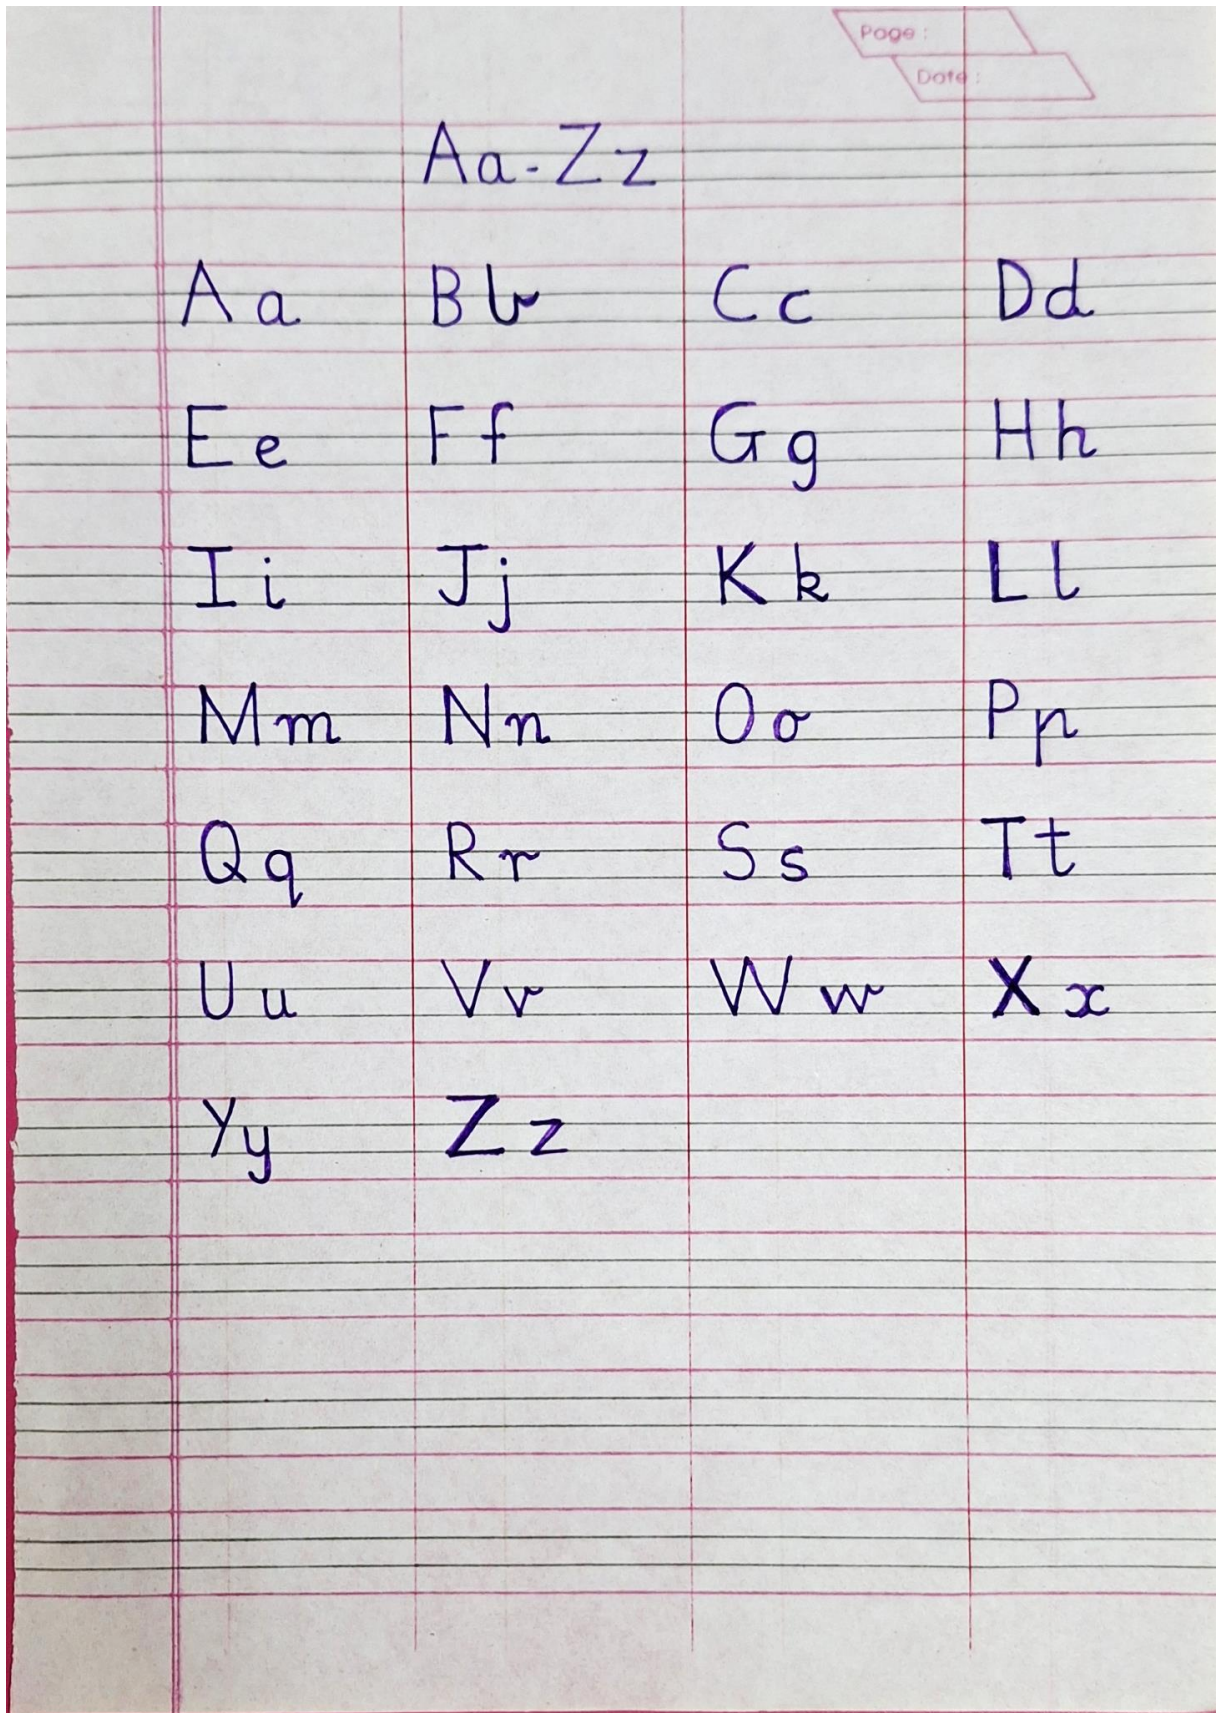 Page :
Date :
Aa-Zz
A a B b C c D d
E e F f G g H h
I i J j K k L l
M m N n O o P p
Q q R r S s T t
U u V v W w X x
Y y Z z